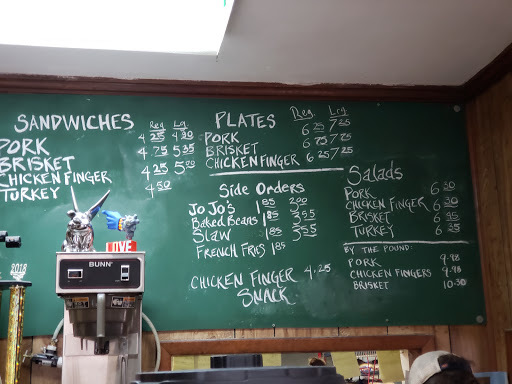 SANDWICHES Reg. Lrg.
PORK 4 25 4 90
BRISKET 4 75 5 35
CHICKEN FINGER 4 25 5 00
TURKEY 4 50
PLATES Reg. Lrg.
PORK 6 25 7 25
BRISKET 6 75 7 75
CHICKEN FINGER 6 25 7 25
Side Orders
JoJo's 1 85
Baked Beans 1 85 3 55
SLAW 1 85 3 55
FRENCH FRIES 1 85
CHICKEN FINGER 4.25
SNACK
Salads
PORK 6 50
CHICKEN FINGER 6 50
BRISKET 6
TURKEY 6
BY THE POUND:
PORK 9.98
CHICKEN FINGERS 9.98
BRISKET 10.50
BUNN
LIVE
2018